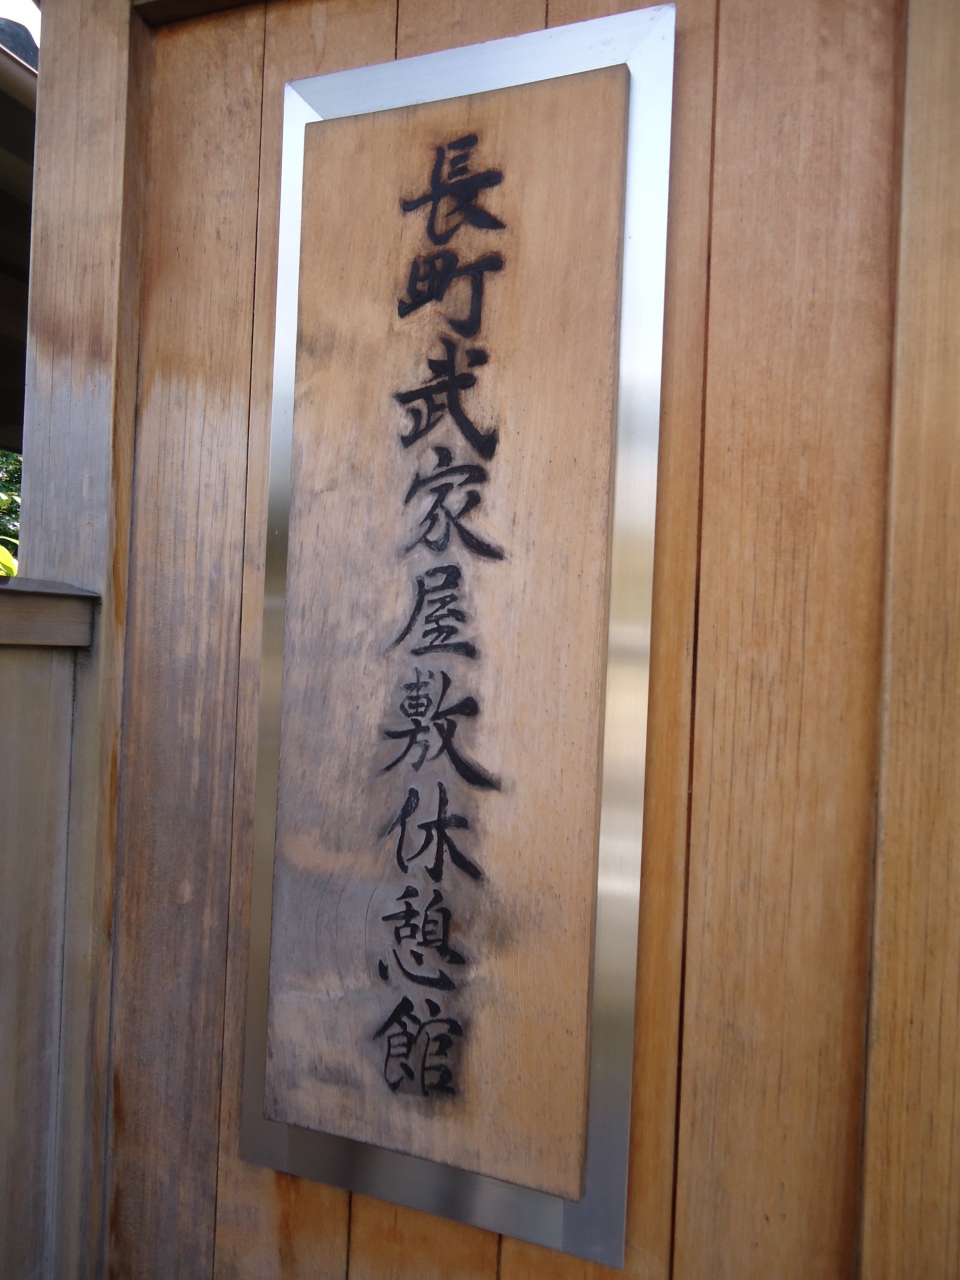 長町武家屋敷休憩館